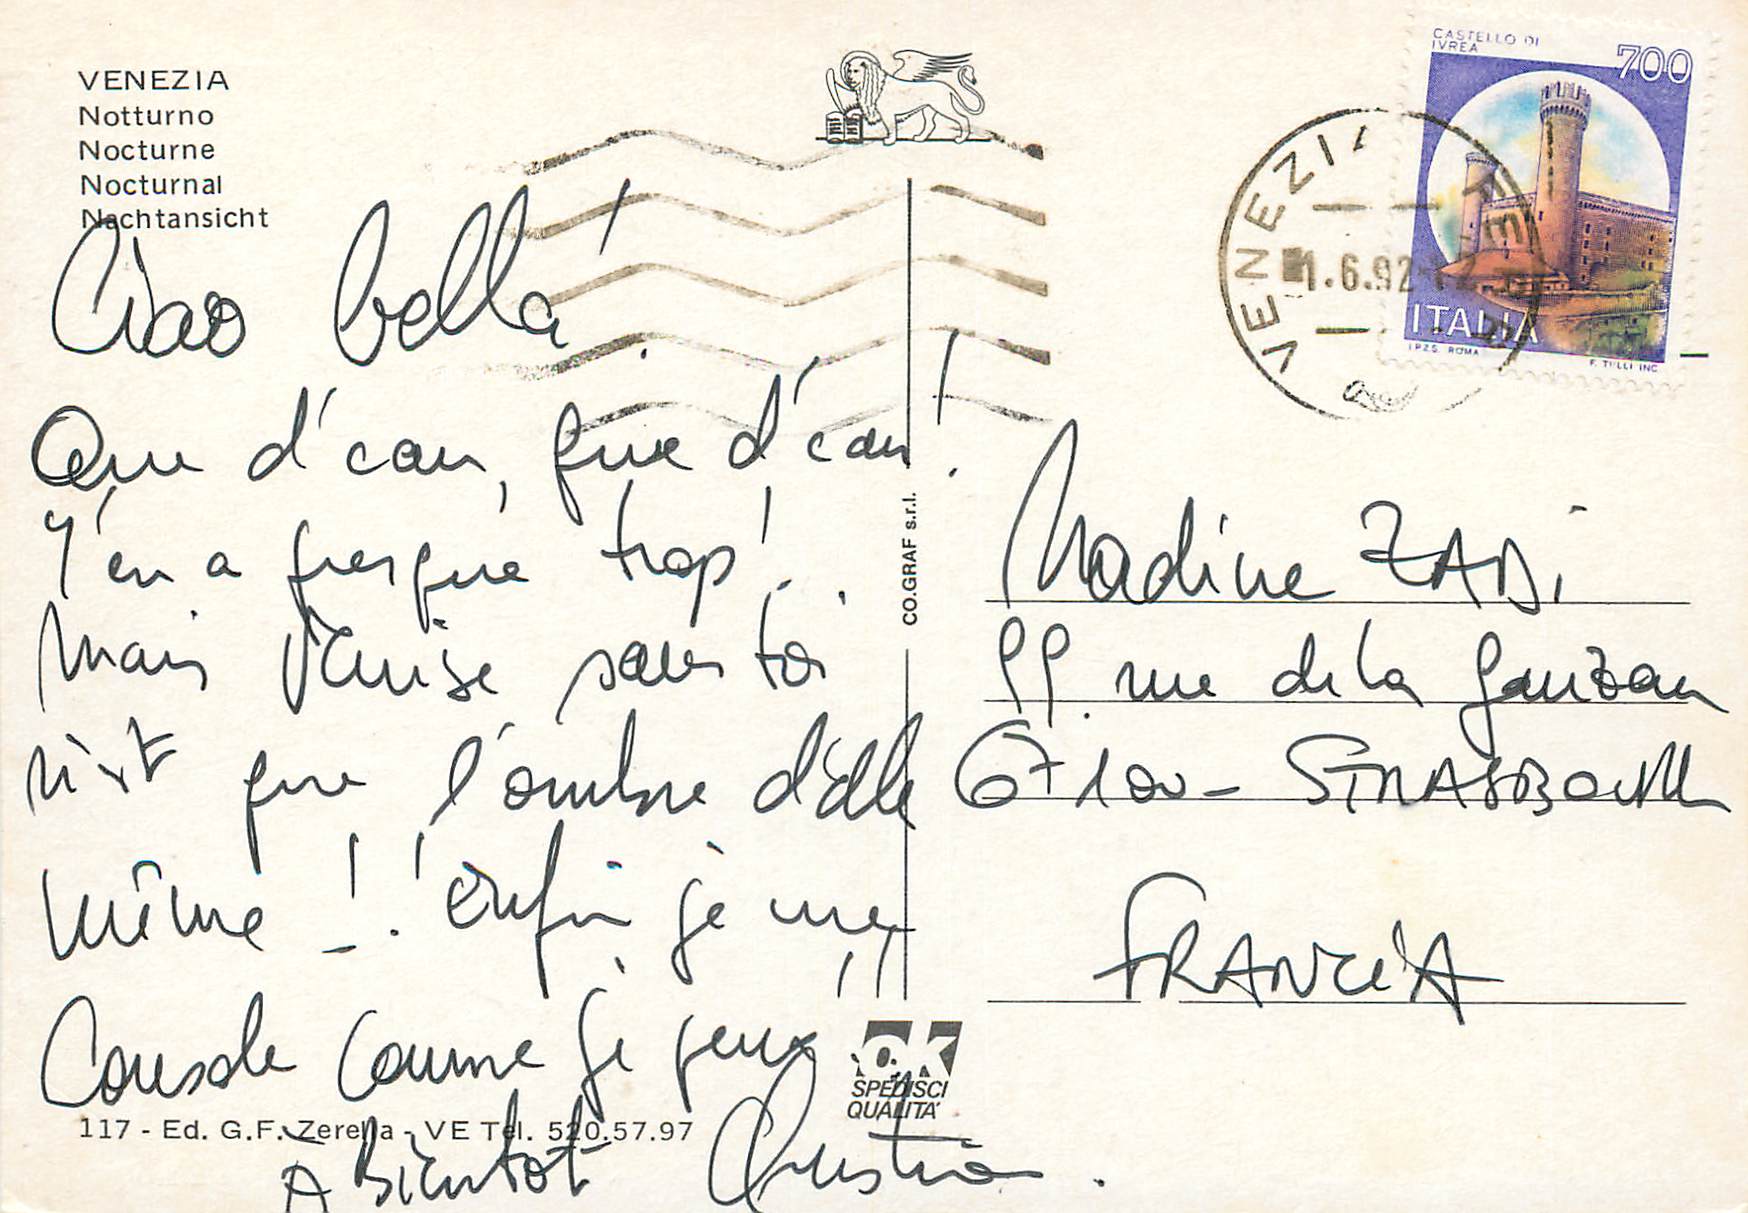 VENEZIA
Notturno
Nocturne
Nocturnal
Nachtansicht
Ciao bella !
Que d'eau, que d'eau !
Y'en a presque trop !
Mais Venise sans toi
n'est que l'ombre d'elle
même ! Enfin je me
Console comme je peux !!
A Bientôt Christian.
117 - Ed. G.F. Zerella - VE Tel. 520.57.97
CO.GRAF s.r.l.
OK
SPEDISCI
QUALITA'
CASTELLO DI
IVREA
700
ITALIA
I.P.Z.S. ROMA
F. TULLI INC.
VENEZIA FE
1.6.92
Nadine ZADI
99 rue de la Ganzau
67100 - STRASBOURG
FRANCIA